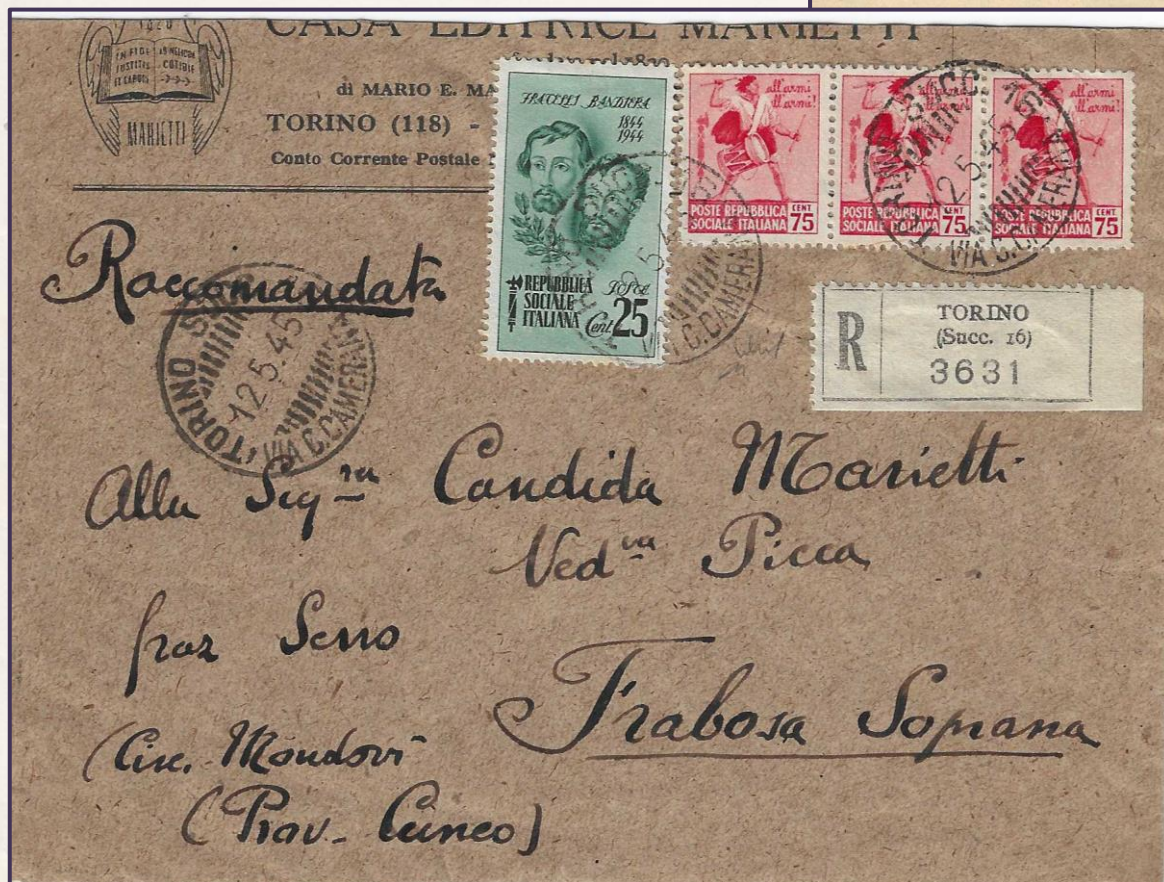 1820
IN FIDE IN MELIORA
INSTITIT COTIDIE
ET CAROLI
MARIETTI
CASA EDITRICE MARIETTI
di MARIO E. MA
TORINO (118) -
Conto Corrente Postale
FRATELLI BANDIERA
1844
1944
REPUBBLICA
SOCIALE
ITALIANA
Cent 25
all'armi
all'armi!
POSTE REPUBBLICA
SOCIALE ITALIANA
CENT.
75
all'armi
all'armi!
POSTE REPUBBLICA
SOCIALE ITALIANA
CENT.
75
all'armi
all'armi!
POSTE REPUBBLICA
SOCIALE ITALIANA
CENT.
75
SUCC. 16
12.5.45
VIA C.CAMERANA
C.CAMERA
Raccomandata
TORINO
12.5.45
VIA C.CAMERANA
R
TORINO
(Succ. 16)
3631
Alla Sig.ra Candida Marietti
Ved.va Picca
fraz Serro
Frabosa Soprana
(Circ. Mondovi
(Prov. Cuneo)